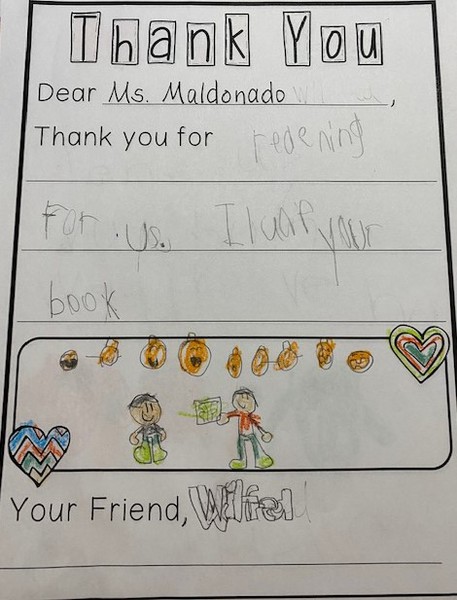 Thank You
Dear Ms. Maldonado,
Thank you for redening
For us. I luap your
book
Your Friend, Wilfred